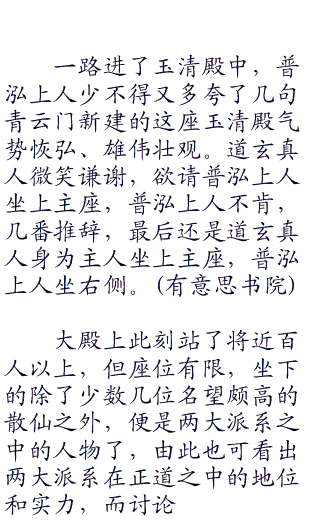 一路进了玉清殿中，普
泓上人少不得又多夸了几句
青云门新建的这座玉清殿气
势恢弘、雄伟壮观。道玄真
人微笑谦谢，欲请普泓上人
坐上主座，普泓上人不肯，
几番推辞，最后还是道玄真
人身为主人坐上主座，普泓
上人坐右侧。(有意思书院)
大殿上此刻站了将近百
人以上，但座位有限，坐下
的除了少数几位名望颇高的
散仙之外，便是两大派系之
中的人物了，由此也可看出
两大派系在正道之中的地位
和实力，而讨论